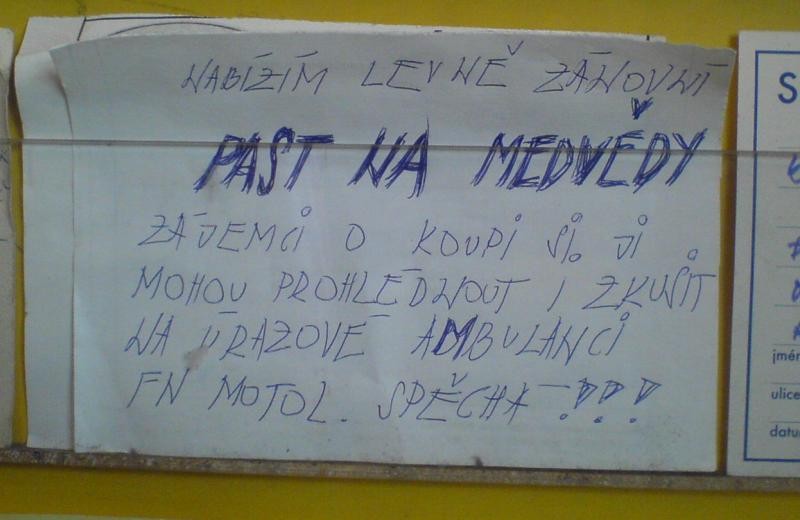 NABÍZÍM LEVNĚ ZÁNOVNÍ
PAST NA MEDVĚDY
ZÁJEMCI O KOUPI SI JI
MOHOU PROHLÉDNOUT I ZKUSIT
NA ÚRAZOVÉ AMBULANCI
FN MOTOL. SPĚCHÁ !!!
S
jmén
ulice
datu